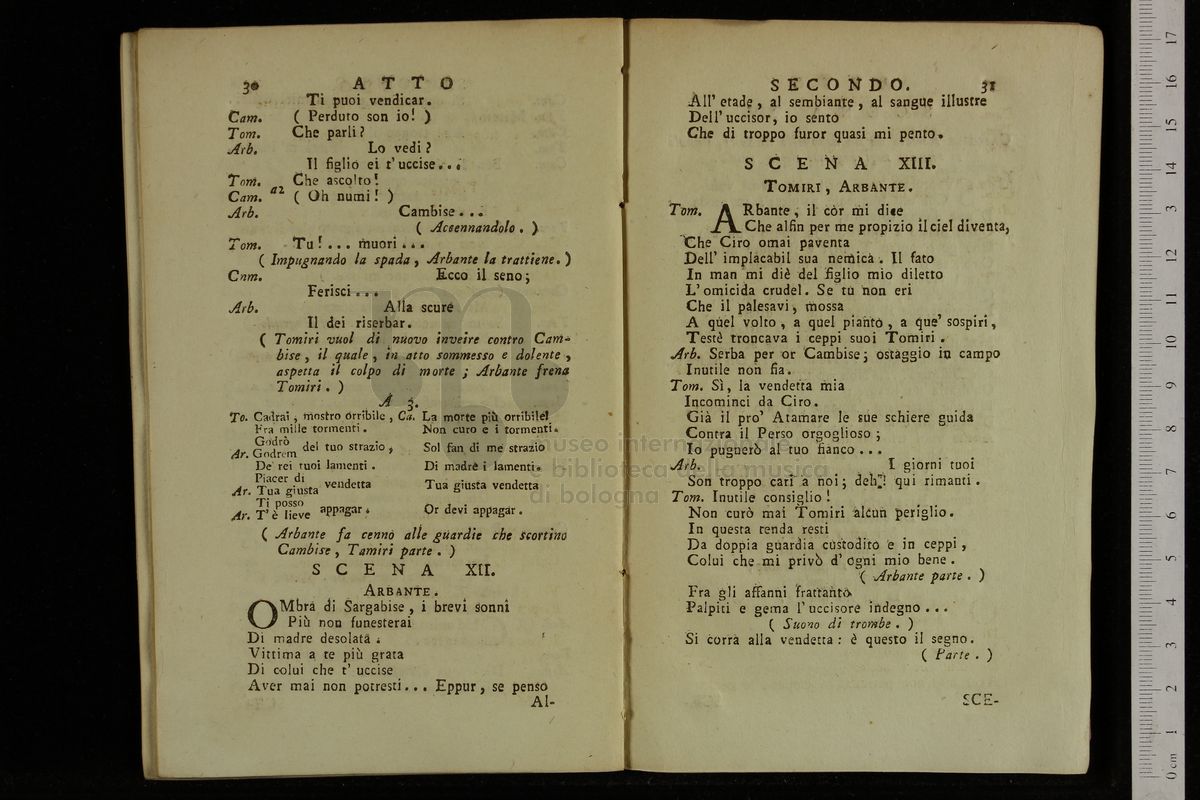 30 ATTO
Ti puoi vendicar.
Cam. ( Perduto son io! )
Tom. Che parli?
Arb. Lo vedi?
Il figlio ei t' uccise...
Tom. Che ascolto!
Cam. a2 ( Oh numi! )
Arb. Cambise...
( Accennandolo. )
Tom. Tu!... muori...
( Impugnando la spada, Arbante la trattiene. )
Cam. Ecco il seno;
Ferisci...
Arb. Alla scure
Il dei riserbar.
( Tomiri vuol di nuovo inveire contro Cam-
bise, il quale, in atto sommesso e dolente,
aspetta il colpo di morte; Arbante frena
Tomiri. )
A 3.
To. Cadrai, mostro orribile, Ca. La morte più orribile
Fra mille tormenti. Non curo e i tormenti.
Godrò
Ar. Godrem del tuo strazio, Sol fan di me strazio
De' rei tuoi lamenti. Di madre i lamenti.
Piacer di
Ar. Tua giusta vendetta Tua giusta vendetta
Ti posso
Ar. T' è lieve appagar. Or devi appagar.
( Arbante fa cenno alle guardie che scortino
Cambise, Tamiri parte. )
SCENA XII.
ARBANTE.
OMbra di Sargabise, i brevi sonni
Più non funesterai
Di madre desolata.
Vittima a te più grata
Di colui che t' uccise
Aver mai non potresti... Eppur, se penso
Al-
SECONDO. 31
All' etade, al sembiante, al sangue illustre
Dell' uccisor, io sento
Che di troppo furor quasi mi pento.
SCENA XIII.
TOMIRI, ARBANTE.
Tom. ARbante, il cor mi dice
Che alfin per me propizio il ciel diventa,
Che Ciro omai paventa
Dell' implacabil sua nemica. Il fato
In man mi diè del figlio mio diletto
L' omicida crudel. Se tu non eri
Che il palesavi, mossa
A quel volto, a quel pianto, a que' sospiri,
Testè troncava i ceppi suoi Tomiri.
Arb. Serba per or Cambise; ostaggio in campo
Inutile non fia.
Tom. Sì, la vendetta mia
Incominci da Ciro.
Già il pro' Atamare le sue schiere guida
Contra il Perso orgoglioso;
Io pugnerò al tuo fianco...
Arb. I giorni tuoi
Son troppo cari a noi; deh! qui rimanti.
Tom. Inutile consiglio!
Non curò mai Tomiri alcun periglio.
In questa tenda resti
Da doppia guardia custodito e in ceppi,
Colui che mi privò d' ogni mio bene.
( Arbante parte. )
Fra gli affanni frattanto
Palpiti e gema l' uccisore indegno...
( Suono di trombe. )
Si corra alla vendetta: è questo il segno.
( Parte. )
SCE-
museo internazionale
e biblioteca della musica
di bologna
0 cm 1 2 3 4 5 6 7 8 9 10 11 12 13 14 15 16 17